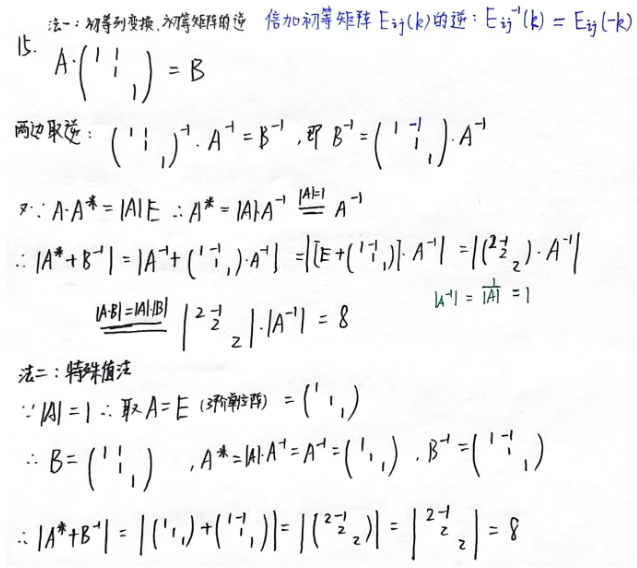 法一：初等列变换、初等矩阵的逆 倍加初等矩阵 Eij(k)的逆：Eij⁻¹(k) = Eij(-k)
15. A·(1 1 1 1) = B
两边取逆：(1 1 1 1)⁻¹·A⁻¹ = B⁻¹，即 B⁻¹ = (1 -1 1 1)·A⁻¹
又∵ A·A* = |A|E ∴ A* = |A|A⁻¹ |A|=1 = A⁻¹
∴ |A*+B⁻¹| = |A⁻¹+(1 -1 1 1)·A⁻¹| = |[E+(1 -1 1 1)]·A⁻¹| = |(2 -1 2 2)·A⁻¹|
|A·B|=|A|·|B| = |2 -1 2 2|·|A⁻¹| = 8 |A⁻¹| = 1/|A| = 1
法二：特殊值法
∵ |A| = 1 ∴ 取 A = E (3阶单位阵) = (1 1 1)
∴ B = (1 1 1 1)，A* = |A|·A⁻¹ = A⁻¹ = (1 1 1)，B⁻¹ = (1 -1 1 1)
∴ |A*+B⁻¹| = |(1 1 1)+(1 -1 1 1)| = |(2 -1 2 2)| = |2 -1 2 2| = 8